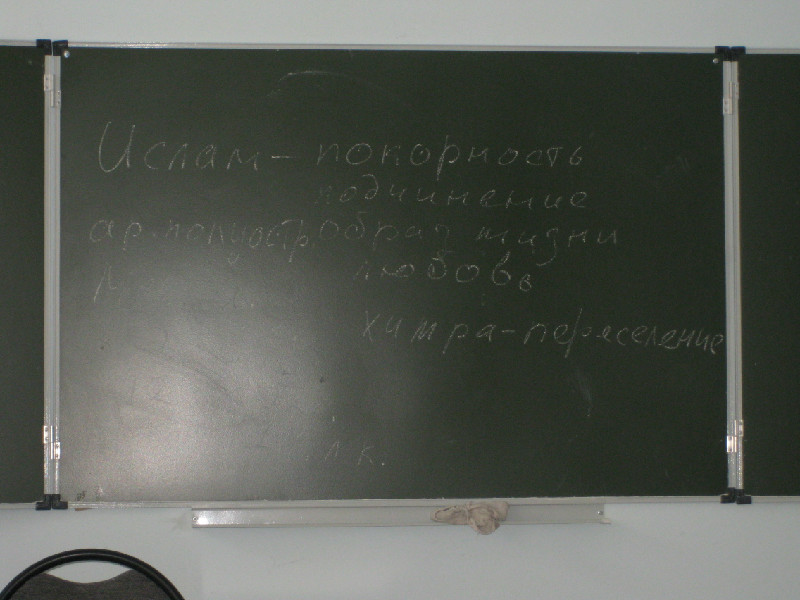 Ислам – покорность
подчинение
ар. полуостр. образ жизни
любовь
химра – переселение
л к.